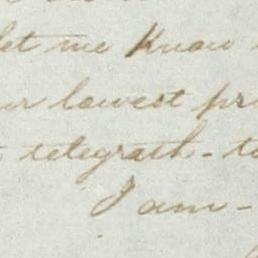 let me Know
lowest
telegrath - to
I am -